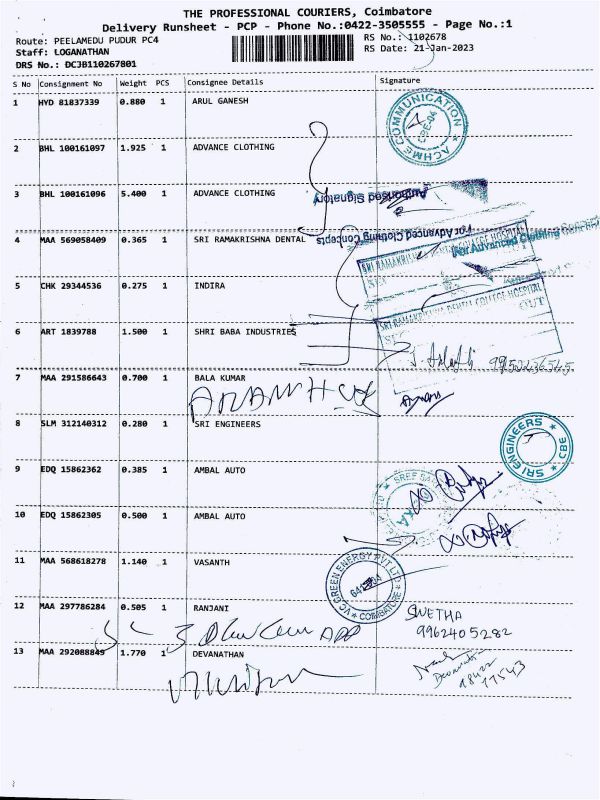 THE PROFESSIONAL COURIERS, Coimbatore
Delivery Runsheet - PCP - Phone No.:0422-3505555 - Page No.:1
Route: PEELAMEDU PUDUR PC4 RS No.: 1102678
Staff: LOGANATHAN RS Date: 21-Jan-2023
DRS No.: DCJB110267801
S No Consignment No Weight PCS Consignee Details Signature
1 HYD 81837339 0.880 1 ARUL GANESH
ACHME COMMUNICATION
CBE-04
2 BHL 100161097 1.925 1 ADVANCE CLOTHING
3 BHL 100161096 5.400 1 ADVANCE CLOTHING
Authorised Signatory
4 MAA 569058409 0.365 1 SRI RAMAKRISHNA DENTAL
For Advanced Clothing Concepts
For Advanced Clothing
SRI RAMAKRISHNA DENTAL COLLEGE HOSPITAL
5 CHK 29344536 0.275 1 INDIRA
SRI RAMAKRISHNA DENTAL COLLEGE HOSPITAL
OUT
6 ART 1839788 1.500 1 SHRI BABA INDUSTRIES
7 MAA 291586643 0.700 1 BALA KUMAR
8 SLM 312140312 0.280 1 SRI ENGINEERS
SRI ENGINEERS CBE
9 EDQ 15862362 0.385 1 AMBAL AUTO
10 EDQ 15862305 0.500 1 AMBAL AUTO
11 MAA 568618278 1.140 1 VASANTH
GREEN ENERGY PVT LTD
COIMBATORE
12 MAA 297786284 0.505 1 RANJANI
SWETHA
9962405282
13 MAA 292088849 1.770 1 DEVANATHAN